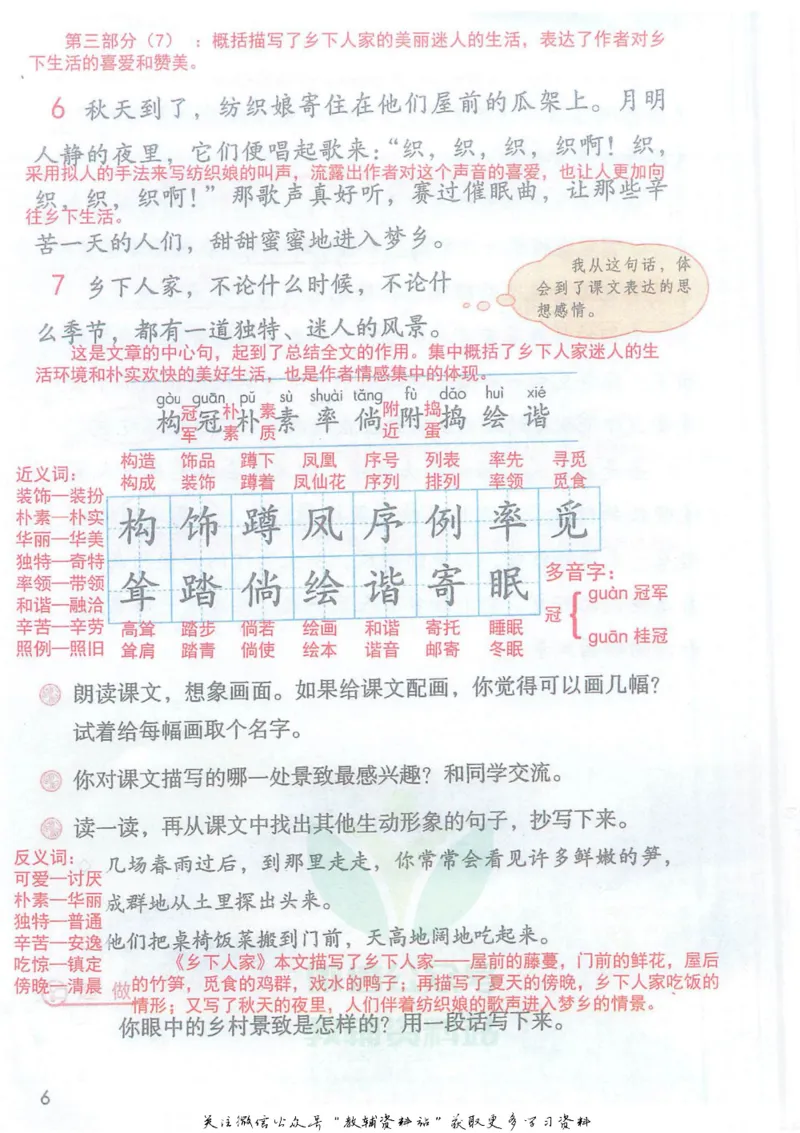 第三部分（7）：概括描写了乡下人家的美丽迷人的生活，表达了作者对乡
下生活的喜爱和赞美。
6 秋天到了，纺织娘寄住在他们屋前的瓜架上。月明
人静的夜里，它们便唱起歌来：“织，织，织，织啊！织，
采用拟人的手法来写纺织娘的叫声，流露出作者对这个声音的喜爱，也让人更加向
织，织，织啊！”那歌声真好听，赛过催眠曲，让那些辛
往乡下生活。
苦一天的人们，甜甜蜜蜜地进入梦乡。
7 乡下人家，不论什么时候，不论什
么季节，都有一道独特、迷人的风景。
我从这句话，体
会到了课文表达的思
想感情。
这是文章的中心句，起到了总结全文的作用。集中概括了乡下人家迷人的生
活环境和朴实欢快的美好生活，也是作者情感集中的体现。
gòu guān pǔ sù shuài tǎng fù dǎo huì xié
构 冠 朴 素 率 倘 附 捣 绘 谐
冠军 朴素 素质 附近 捣蛋
构造 饰品 蹲下 凤凰 序号 列表 率先 寻觅
构成 装饰 蹲着 凤仙花 序列 排列 率领 觅食
构 饰 蹲 凤 序 例 率 觅
耸 踏 倘 绘 谐 寄 眠
高耸 踏步 倘若 绘画 和谐 寄托 睡眠
耸肩 踏青 倘使 绘本 谐音 邮寄 冬眠
近义词：
装饰—装扮
朴素—朴实
华丽—华美
独特—奇特
率领—带领
和谐—融洽
辛苦—辛劳
照例—照旧
多音字：
冠
guàn 冠军
guān 桂冠
朗读课文，想象画面。如果给课文配画，你觉得可以画几幅？
试着给每幅画取个名字。
你对课文描写的哪一处景致最感兴趣？和同学交流。
读一读，再从课文中找出其他生动形象的句子，抄写下来。
几场春雨过后，到那里走走，你常常会看见许多鲜嫩的笋，
成群地从土里探出头来。
他们把桌椅饭菜搬到门前，天高地阔地吃起来。
反义词：
可爱—讨厌
朴素—华丽
独特—普通
辛苦—安逸
吃惊—镇定
傍晚—清晨
做
《乡下人家》本文描写了乡下人家——屋前的藤蔓，门前的鲜花，屋后
的竹笋，觅食的鸡群，戏水的鸭子；再描写了夏天的傍晚，乡下人家吃饭的
情形；又写了秋天的夜里，人们伴着纺织娘的歌声进入梦乡的情景。
你眼中的乡村景致是怎样的？用一段话写下来。
6
关注微信公众号“教辅资料站”获取更多学习资料